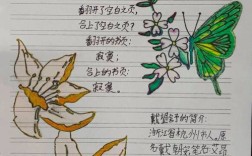 翻开了空白之页,
合上了空白之页?
翻开的书页:
寂寞;
合上的书页:
寂寞。
戴望舒的简介:
浙江省杭州市人,